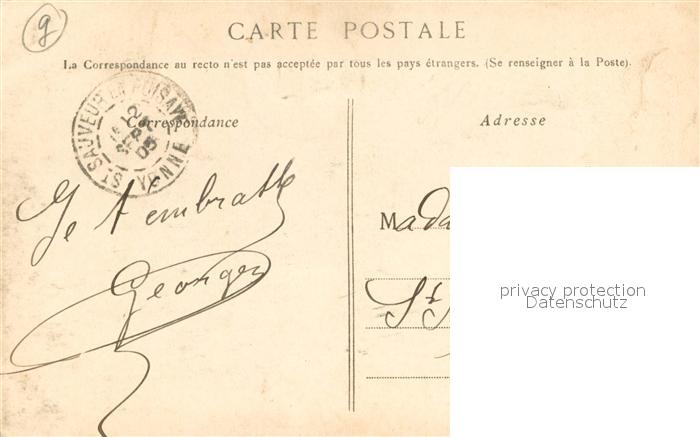 g
CARTE POSTALE
La Correspondance au recto n'est pas acceptée par tous les pays étrangers. (Se renseigner à la Poste).
ST SAUVEUR EN PUISAYE
YONNE
Correspondance
Adresse
Je t'embrasse
Georges
Mada
St
privacy protection
Datenschutz